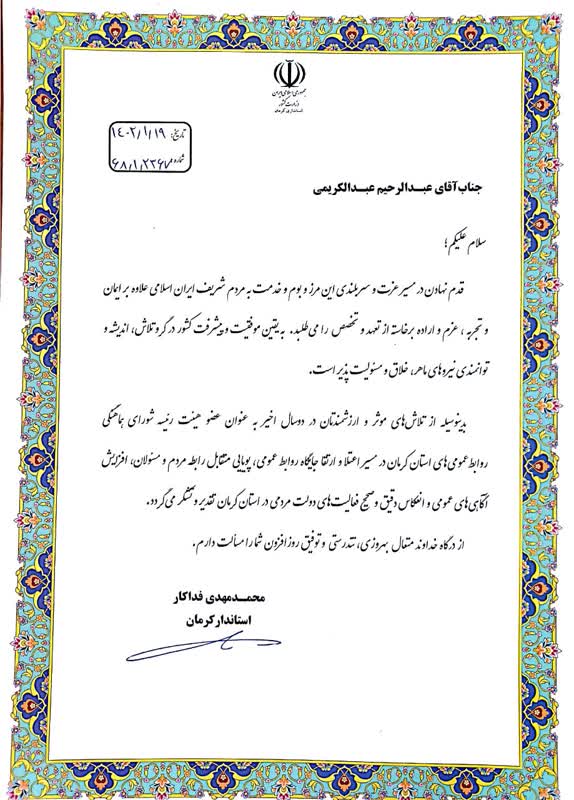 جمهوری اسلامی ایران
وزارت کشور
استانداری کرمان
تاریخ: ۱۴۰۲/۱/۱۹
شماره: ۶۸/۱/۲۳۶۷
جناب‌آقای عبدالرحیم عبدالکریمی
سلام علیکم؛
قدم نهادن در مسیر عزت و سربلندی این مرز و بوم و خدمت به مردم شریف ایران اسلامی علاوه بر ایمان
و تجربه، عزم و اراده برخاسته از تعهد و تخصص را می‌طلبد. به یقین موفقیت و پیشرفت کشور در گرو تلاش، اندیشه و
توانمندی نیروهای ماهر، خلاق و مسئولیت پذیر است.
بدینوسیله از تلاش‌های موثر و ارزشمندتان در دوسال اخیر به عنوان عضو هیئت رئیسه شورای هماهنگی
روابط عمومی‌های استان کرمان در مسیر اعتلا و ارتقا جایگاه روابط عمومی، پویایی متقابل رابطه مردم و مسئولان، افزایش
آگاهی‌های عمومی و انعکاس دقیق و صحیح فعالیت‌های دولت مردمی در استان کرمان تقدیر و تشکر می‌گردد.
از درگاه خداوند متعال بهروزی، تندرستی و توفیق روزافزون شما را مسألت دارم.
محمدمهدی فداکار
استاندار کرمان